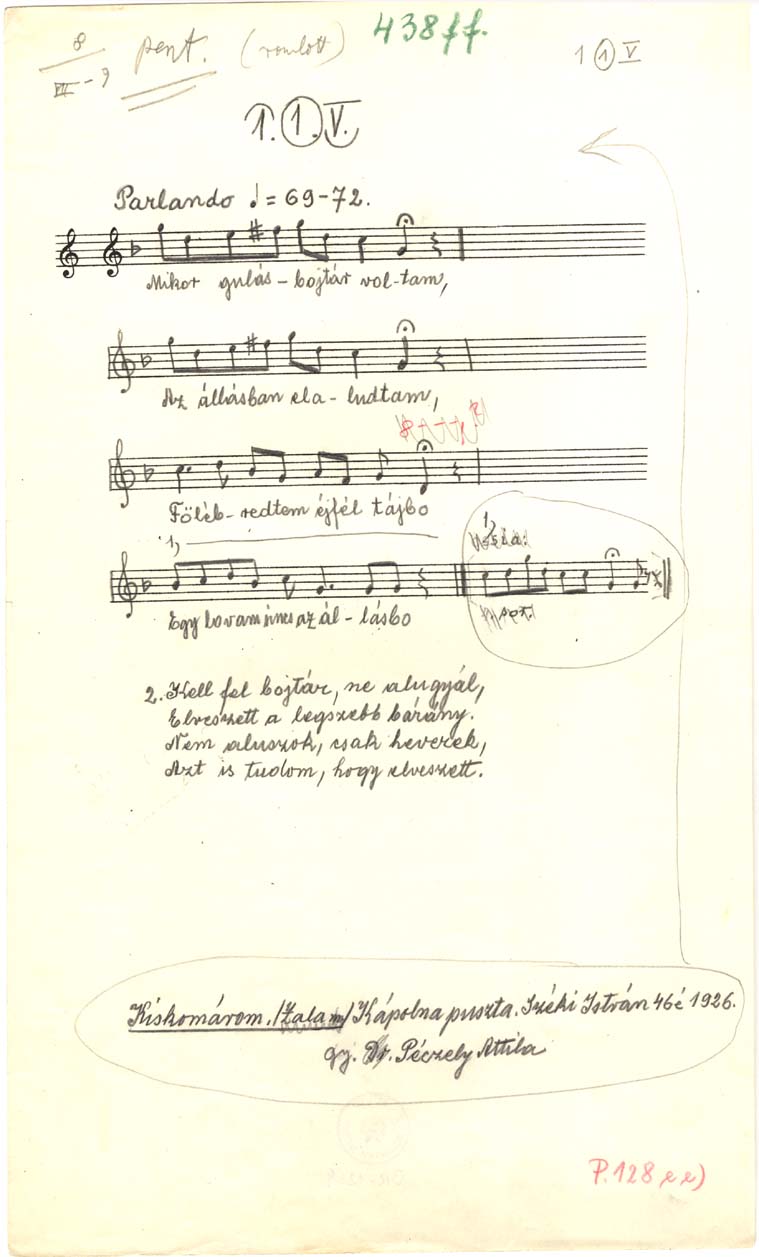 8
VII - 9
pent. (romlott)
438ff.
1 1 V
1. 1. V.
Parlando ♩ = 69-72.
Mikor gulás-bojtár vol-tam,
Az állásban ela-ludtam,
Föléb-redtem éjfél tájbo
1,
Egy lovam nincs az ál-lásbo
1,
2. Kell fel bojtár, ne alugyál,
Elveszett a legszebb bárány.
Nem aluszok, csak heverek,
Azt is tudom, hogy elveszett.
Kiskomárom. /Zala m/ Kápolna puszta. Széki István 46é 1926.
gy. Dr. Péczely Attila
P. 128 ee)